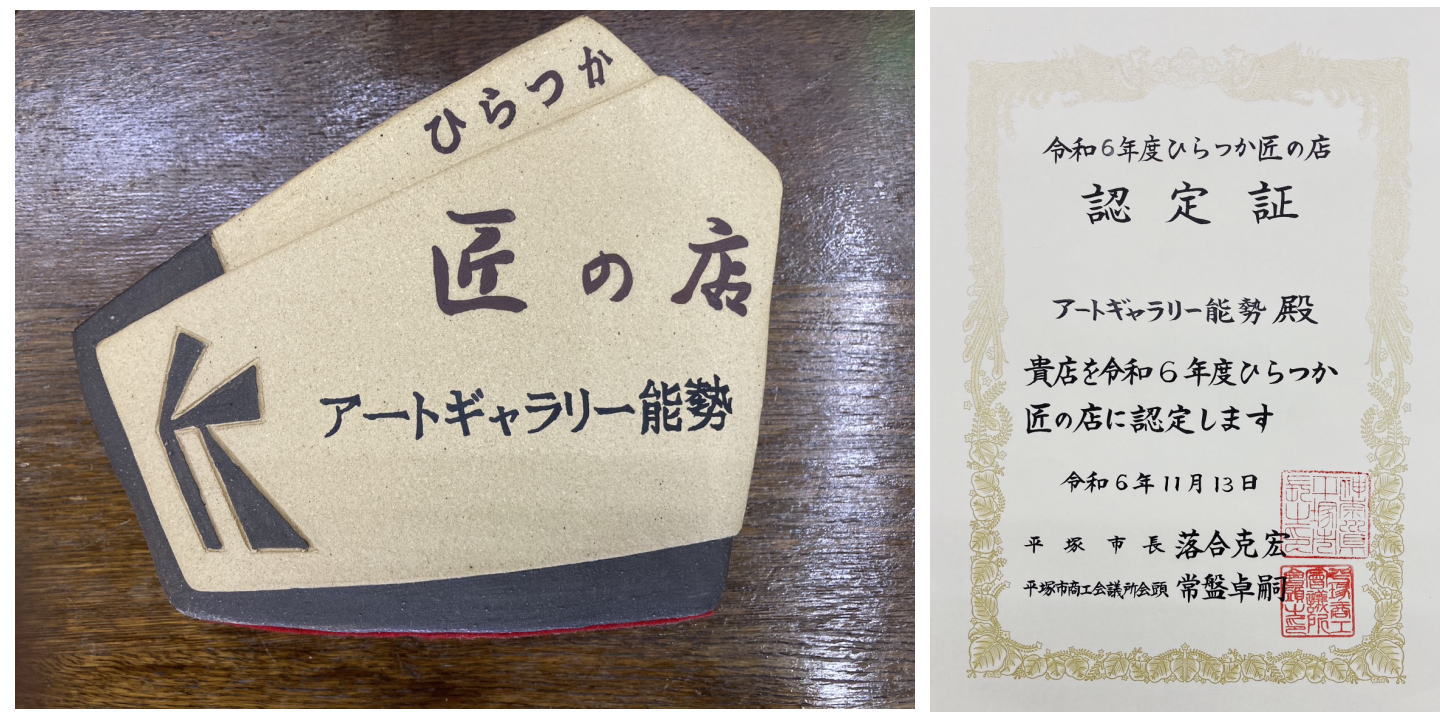 ひらつか
匠の店
アートギャラリー能勢
令和6年度ひらつか匠の店
認定証
アートギャラリー能勢 殿
貴店を令和6年度ひらつか
匠の店に認定します
令和6年11月13日
平塚市長 落合克宏
平塚市商工会議所会頭 常盤卓嗣